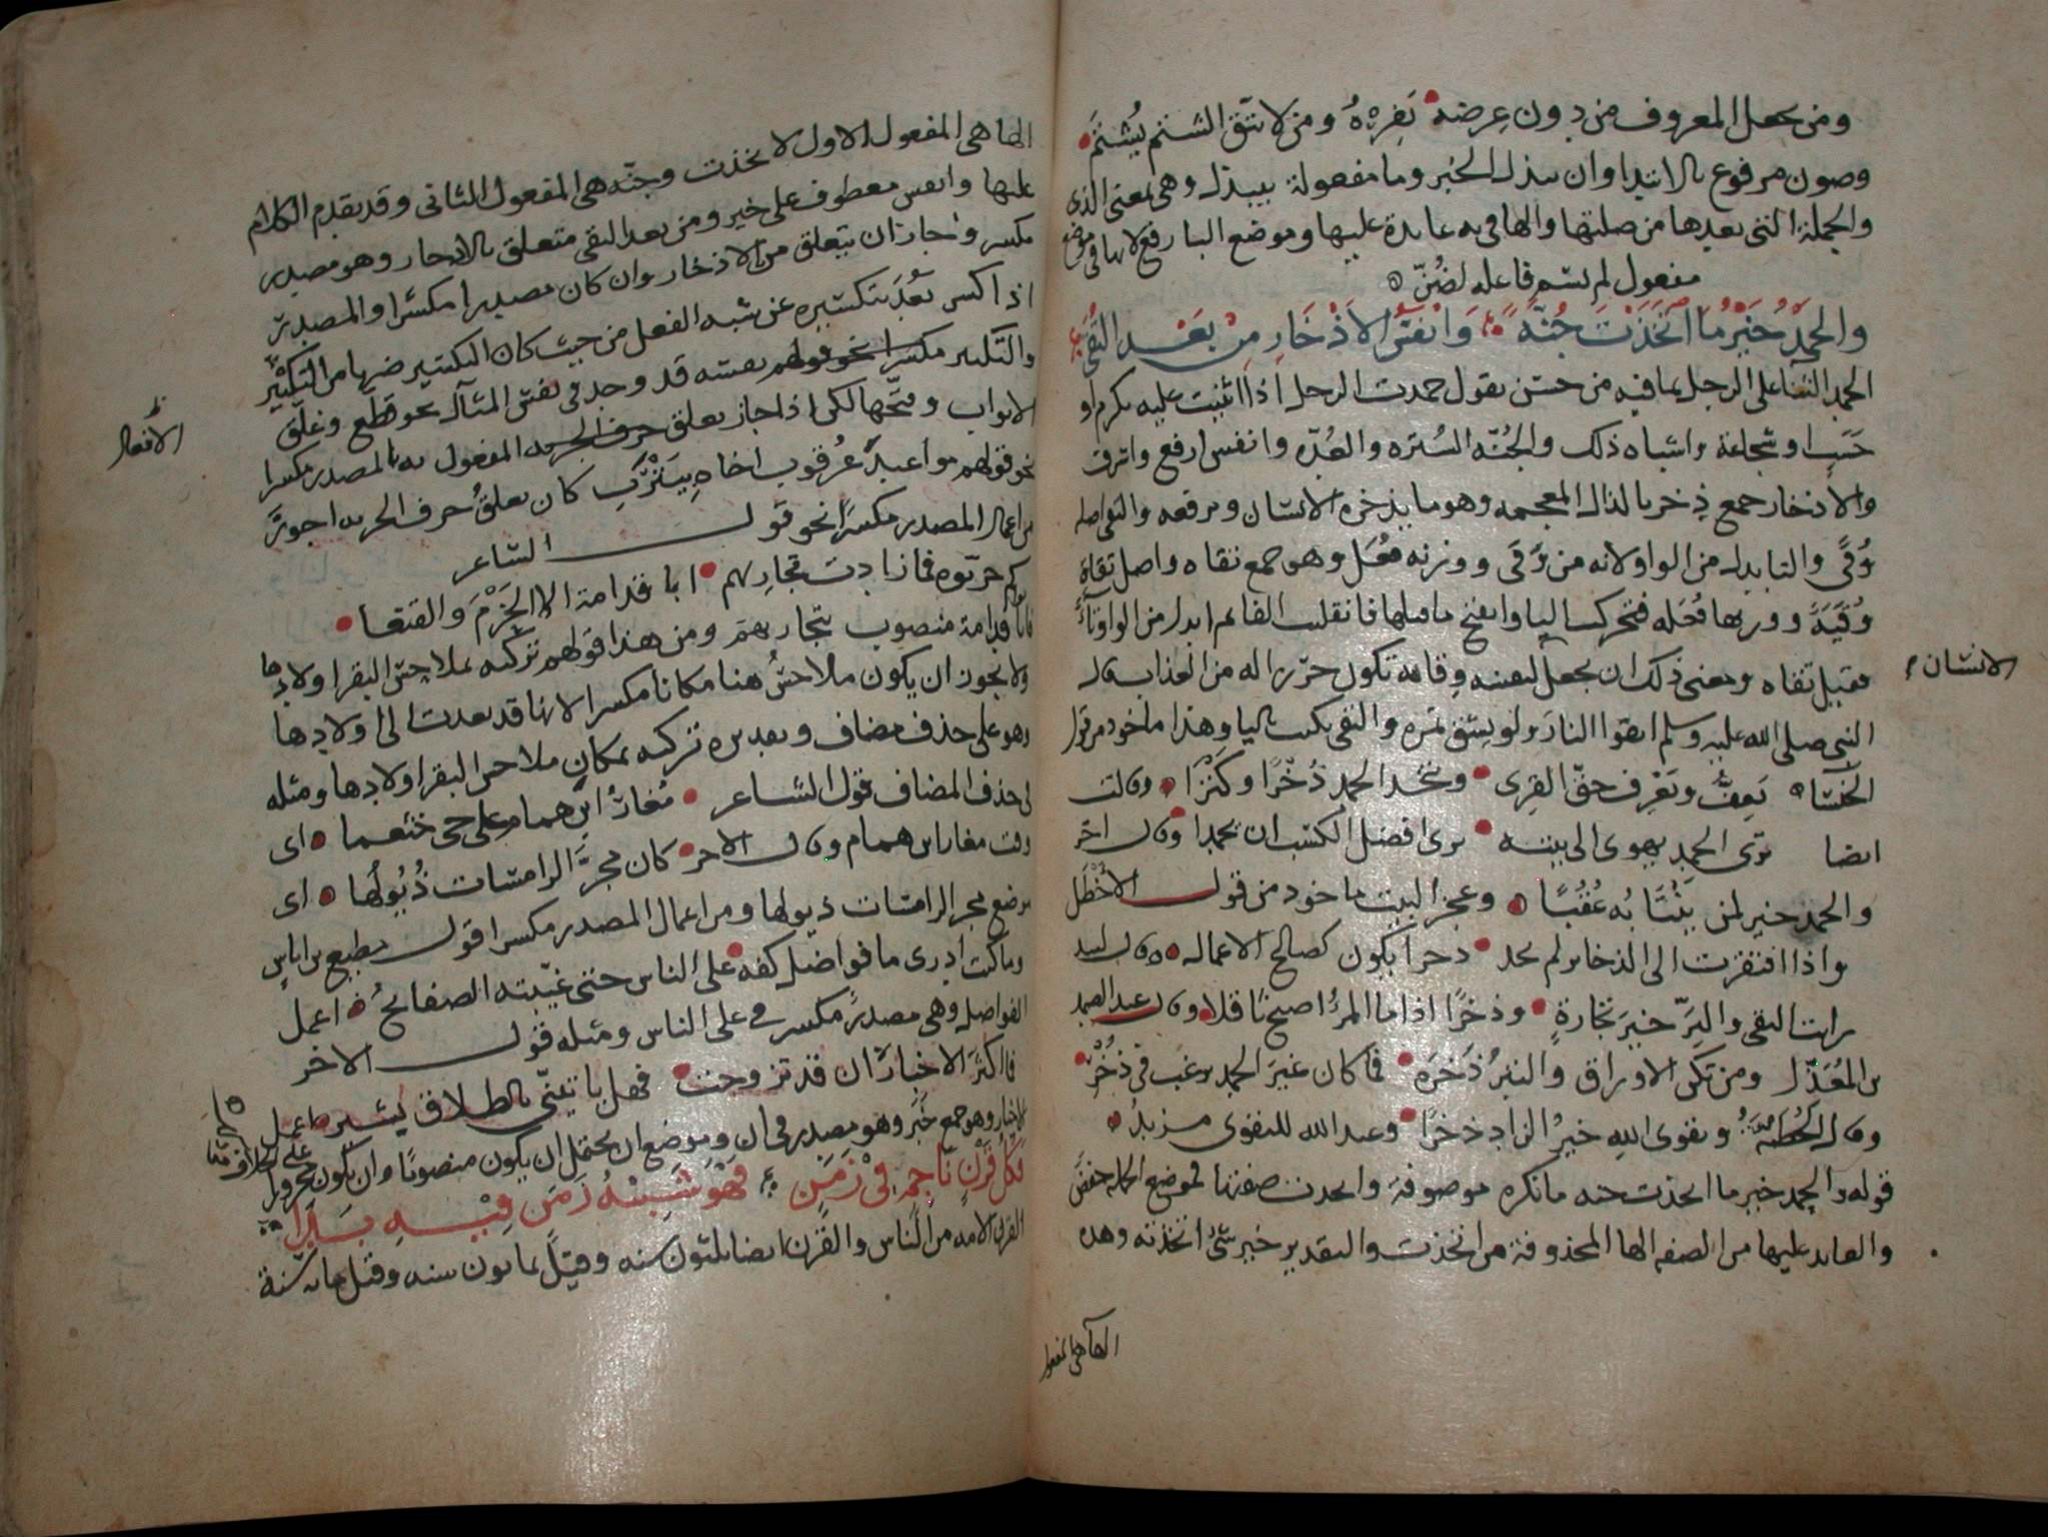 ومن يجعل المعروف من دون عرضه يفره ومن لا يتق الشتم يُشتَم
وصون مرفوع بالابتدا وان يبذل الخبر وما مفعولة بيبذل وهي بمعنى الذي
والجملة التي بعدها من صلتها والها في به عايدة عليها وموضع البا رفع لانها في موضع
مفعول لم يسم فاعله لضُنّ
والحمدُ خيرُ ما اتخذت جُنّةً وانفسُ الاذخارِ من بعد التُقى
الحمد الثنا على الرجل بما فيه من حسن يقول حمدت الرجل اذا اثنيت عليه بكرم او
حَسَب او شجاعة واشباه ذلك والجُنّه السُتره والعُدّه وانفس ارفع واترف
والاذخار جمع ذخر بالذال المعجمه وهو ما يذخره الانسان ويرفعه والتقى اصله
وُقًى والتا بدل من الواو لانه من وَقَى ووزنه فُعَل وهو جمع تقاه واصل تقاة
وُقَيَة ووزنها فُعَله فتحركت اليا وانفتح ما قبلها فانقلبت الفا ثم ابدل من الواو تاء
فقيل تقاه ومعنى ذلك ان يجعل لنفسه وقاية تكون حرزا له من العذاب قال
الانسان
النبي صلى الله عليه وسلم اتقوا النار ولو بشق تمره والتقى يكتب باليا وهذا ماخوذ من قول
الخنساء يَعِفُّ ويَعْرِف حقّ القِرى ويتخذ الحمد ذُخْرًا وكَنْزًا وقالت
ايضا ترى الحمد يهوى الى بيته يرى افضل الكسب ان يحمدا وقال اخر
والحمد خير لمن يُثنا به عُقُبًا وعجز البيت ماخوذ من قول الاخطل
واذا افتقرت الى الذخاير لم تجد ذخرا يكون كصالح الاعمال وقال لبيد
رايت التقى والبِرّ خيرَ تجارةٍ وذخرًا اذا ما المرءُ اصبح ثاقلا وقال عبد الصمد
بن المُعَذّل ومن تكن الاوراق والتبرُ ذُخرَه فما كان غيرَ الحمد يرغب في ذُخْر
وقال الحُطَيْئَةُ وتقوى اللهِ خيرُ الزاد ذخرًا وعند الله للتقوى مزيدُ
قوله والحمد خير ما اتخذت جنه ما نكره موصوفة واتخذت صفتها فموضع الجمله خفض
والعايد عليها من الصفه الها المحذوفة من اتخذت والتقدير خير شئ اتخذته وهذه
الهآ هي المفعول
الها هي المفعول الاول لاتخذت وجنّه هي المفعول الثاني وقد تقدم الكلام
عليها وانفس معطوف على خير ومن بعد التقى متعلق بالاذخار وهو مصدر
مكسر وجاز ان يتعلق من بالاذخار وان كان مصدرا مكسّرا والمصدر
اذا كسر بَعُدَ بتكسيره عن شبه الفعل من حيث كان التكسير ضربا من التكثير
والتكسير مكسرا نحو قولهم بعينه قد وجد في نفس المثال نحو قطّع وغلّق
الافعال
الابواب وفتّحها لكن اذا جاز تعلق حرف الجر به المفعول به بالمصدر مكسرا
نحو قولهم مواعيدُ عُرقوبٍ اخاه بيَثْرَب كان تعلقُ حرف الجر به اجوز
من اعمال المصدر مكسرًا نحو قول الشاعر
كم جرّبوه فما زادت تجاربهم ابا قدامة الا الحَزْمَ والقنعا
فابا قدامة منصوب بتجاربهم ومن هذا قولهم تركته بملاحس البقر اولادها
ولا يجوز ان يكون ملاحسُ هنا مكانا مكسرا لانها قد تعدت الى اولادها
وهو على حذف مضاف وتقديره تركته بمكان ملاحس البقر اولادها ومثله
في حذف المضاف قول الشاعر مُغارَ ابنِ همام على حي خثعما اي
وقت مغار ابن همام وقال الاخر كان مجرَّ الرامسات ذُيُولُها اي
موضع مجر الرامسات ذيولها ومن اعمال المصدر مكسرا قول مطيع بن اياس
وما كنت ادرى ما فواضل كفه على الناس حتى غيّبته الصفايحُ اعمل
الفواضل وهي مصدر مكسر في على الناس ومثله قول الاخر
فما اكثرَ الاخبارَ ان قد تزوجت فهل ياتينّى بالطلاق بشير اعمل
الاخبار وهو جمع خَبَر وهو مصدر في ان وموضع ان يحتمل ان يكون منصوبًا وان يكون مجرورا
على الخلاف
لكل قَرْنٍ ناجمٍ في زمن فهو شبيهُ زمنٍ فيه بدا
القرن الامه من الناس والقَرْن ايضا ثلثون سنه وقيل ثمانون سنه وقيل مايه سنة